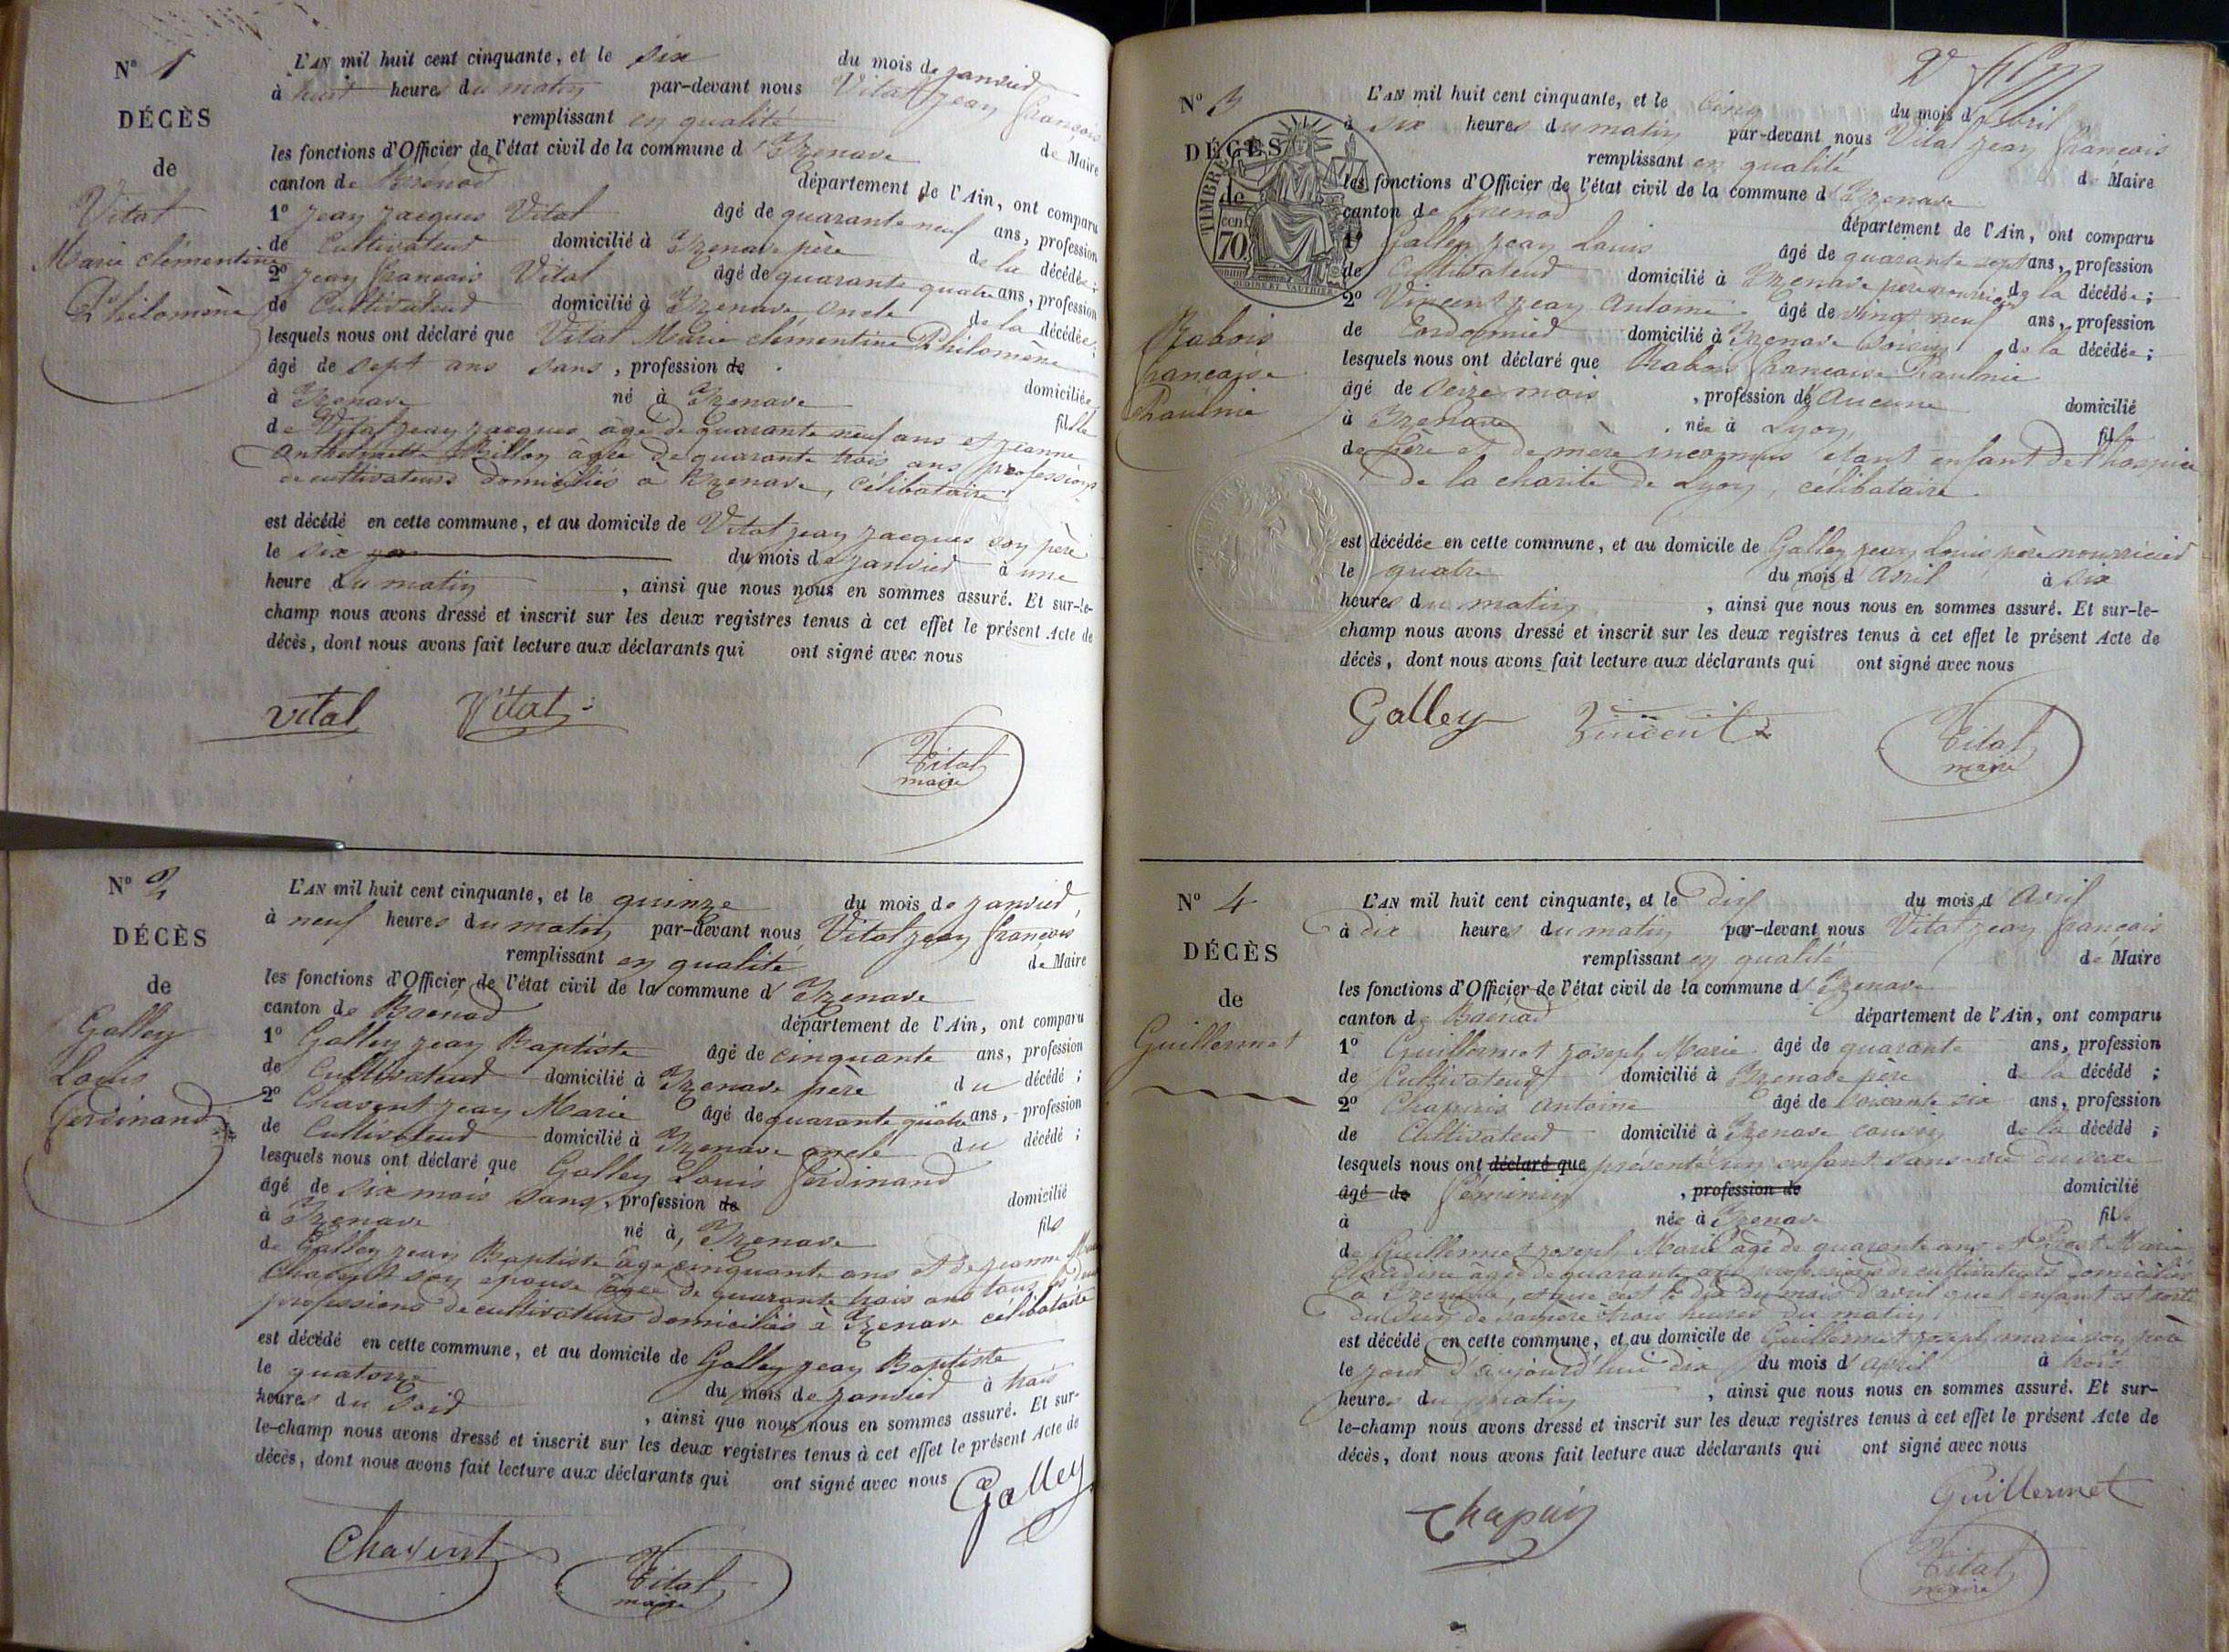 Nº 1
DÉCÈS
de
Vital
Marie clémentine
Philomène
L'AN mil huit cent cinquante, et le six du mois de janvier
à huit heures du matin par-devant nous Vital jean françois
remplissant en qualité de Maire
les fonctions d'Officier de l'état civil de la commune d'Izenave
canton de Brenod département de l'Ain, ont comparu
1º jean jacques Vital âgé de quarante neuf ans, profession
de Cultivateur domicilié à Izenave père de la décédée;
2º jean françois Vital âgé de quarante quatre ans, profession
de Cultivateur domicilié à Izenave oncle de la décédée;
lesquels nous ont déclaré que Vital Marie clémentine Philomène
âgé de sept ans sans, profession de domiciliée
à Izenave né à Izenave fille
de Vital jean jacques âgé de quarante neuf ans et jeanne
Anthelmette Billon âgée de quarante trois ans professions
de cultivateurs domiciliés à Izenave, célibataire
est décédé en cette commune, et au domicile de Vital jean jacques son père
le six du mois de janvier à une
heure du matin, ainsi que nous nous en sommes assuré. Et sur-le-
champ nous avons dressé et inscrit sur les deux registres tenus à cet effet le présent Acte de
décès, dont nous avons fait lecture aux déclarants qui ont signé avec nous
vital Vital
Vital
maire
Nº 2
DÉCÈS
de
Galley
Louis
ferdinand
L'AN mil huit cent cinquante, et le quinze du mois de janvier,
à neuf heures du matin par-devant nous Vital jean françois
remplissant en qualité de Maire
les fonctions d'Officier de l'état civil de la commune d'Izenave
canton de Brenod département de l'Ain, ont comparu
1º Galley jean Baptiste âgé de cinquante ans, profession
de Cultivateur domicilié à Izenave père du décédé;
2º Chavent jean Marie âgé de quarante quatre ans, profession
de Cultivateur domicilié à Izenave oncle du décédé;
lesquels nous ont déclaré que Galley Louis ferdinand
âgé de six mois sans, profession de domicilié
à Izenave né à, Izenave fils
de Galley jean Baptiste âgé cinquante ans et de jeanne Marie
Chavent son épouse âgée de quarante trois ans tous les deux
professions de cultivateurs domiciliés à Izenave célibataire
est décédé en cette commune, et au domicile de Galley jean Baptiste
le quatorze du mois de janvier à trois
heures du soir, ainsi que nous nous en sommes assuré. Et sur-
le-champ nous avons dressé et inscrit sur les deux registres tenus à cet effet le présent Acte de
décès, dont nous avons fait lecture aux déclarants qui ont signé avec nous
Galley
Chavent
Vital
maire
Nº 3
DÉCÈS
de
TIMBRE
70
cent
OUDINE ET VAUTHIER
Rabois
françoise
Paulmie
L'AN mil huit cent cinquante, et le cinq du mois d'avril
à six heures du matin par-devant nous Vital jean françois
remplissant en qualité de Maire
les fonctions d'Officier de l'état civil de la commune d'Izenave
canton de Brenod département de l'Ain, ont comparu
1º Galley jean Louis âgé de quarante sept ans, profession
de Cultivateur domicilié à Izenave père nourricier de la décédée;
2º Vincent jean Antoine âgé de vingt neuf ans, profession
de Cordonnier domicilié à Izenave voisin de la décédée;
lesquels nous ont déclaré que Rabois françoise Paulmie
âgé de seize mois, profession de Aucune domicilié
à Izenave née à Lyon, fille
de père et de mère inconnus étant enfant de l'hospice
de la charité de Lyon, célibataire.
est décédée en cette commune, et au domicile de Galley jean Louis père nourricier
le quatre du mois d'avril à six
heures du matin, ainsi que nous nous en sommes assuré. Et sur-le-
champ nous avons dressé et inscrit sur les deux registres tenus à cet effet le présent Acte de
décès, dont nous avons fait lecture aux déclarants qui ont signé avec nous
Galley Vincent
Vital
maire
Nº 4
DÉCÈS
de
Guillermet
L'AN mil huit cent cinquante, et le dix du mois d'Avril
à dix heures du matin par-devant nous Vital jean françois
remplissant en qualité de Maire
les fonctions d'Officier de l'état civil de la commune d'Izenave
canton de Brenod département de l'Ain, ont comparu
1º Guillermet joseph Marie âgé de quarante ans, profession
de Cultivateur domicilié à Izenave père de la décédé;
2º Chapuis Antoine âgé de soixante six ans, profession
de Cultivateur domicilié à Izenave cousin de la décédé;
lesquels nous ont déclaré que présenté un enfant sans vie du sexe
âgé de féminin, profession de domicilié
à née à Izenave fille
de Guillermet joseph Marie âgé de quarante ans et Marie
Claudine âgée de quarante ans professions de cultivateurs domiciliés
à Izenave, et que c'est le dix du mois d'avril que l'enfant est sorti
du sein de sa mère à trois heures du matin
est décédé en cette commune, et au domicile de Guillermet joseph marie son père
le jour d'aujourd'hui dix du mois d'avril à trois
heures du matin, ainsi que nous nous en sommes assuré. Et sur-
le-champ nous avons dressé et inscrit sur les deux registres tenus à cet effet le présent Acte de
décès, dont nous avons fait lecture aux déclarants qui ont signé avec nous
Guillermet
Chapuis
Vital
maire